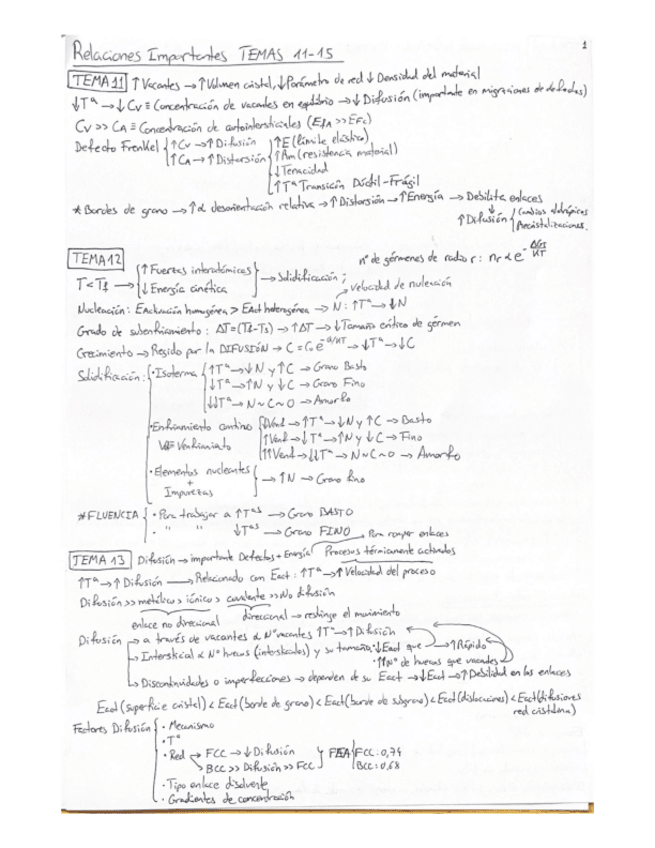 Relaciones Importantes TEMAS 11-15
1
TEMA 11 ↑Vacantes → ↑Volumen cristal, ↓Parámetro de red ↓Densidad del material
↓Tª → ↓Cv ≡ Concentración de vacantes en equilibrio → ↓Difusión (importante en migraciones de defectos)
Cv >> CA ≡ Concentración de autointersticiales (EfA >> Efc)
Defecto Frenkel { ↑Cv → ↑Difusión { ↑E (límite elástico)
↑CA → ↑Distorsión ↑Rm (resistencia material)
↓Tenacidad
↑Tª Transición Dúctil-Frágil
* Bordes de grano → ↑α desorientación relativa → ↑Distorsión → ↑Energía → Debilita enlaces
↓
↑Difusión { Cambios alotrópicos
Precristalizaciones.
TEMA 12
T < Tf → { ↑Fuerzas interatómicas } → Solidificación;
↓Energía cinética
nº de gérmenes de radio r: nr ∝ e^-ΔGr/KT
velocidad de nucleación
Nucleación: EActivación homogénea > EAct heterogénea → N: ↑Tª → ↓N
Grado de subenfriamiento: ΔT=(Tf-Ts) → ↑ΔT → ↓Tamaño crítico de gérmen
Crecimiento → Regido por la DIFUSIÓN → C = C₀e^-Q/KT → ↓Tª → ↓C
Solidificación: { · Isoterma { ↑Tª → ↓N y ↑C → Grano Basto
↓Tª → ↑N y ↓C → Grano Fino
↓↓Tª → N~C~0 → Amorfo
· Enfriamiento continuo { ↓Venf → ↑Tª → ↓N y ↑C → Basto
↑Venf → ↓Tª → ↑N y ↓C → Fino
↑↑Venf → ↓↓Tª → N~C~0 → Amorfo
· Elementos nucleantes { → ↑N → Grano fino
+
Impurezas
*FLUENCIA { · Para trabajar a ↑Tªs → Grano BASTO
· " " ↓Tªs → Grano FINO
Para romper enlaces
TEMA 13 Difusión → importante Defectos + Energía Procesos térmicamente activados
↑Tª → ↑Difusión → Relacionado con Eact: ↑Tª → ↑Velocidad del proceso
Difusión >> metálico > iónico > covalente >> No difusión
enlace no direccional direccional → restringe el movimiento
Difusión → a través de vacantes ∝ Nº vacantes ↑Tª → ↑Difusión
→ Intersticial ∝ Nº huecos (intersticiales) y su tamaño · ↓Eact que → ↑Rápido
· ↑↑Nº de huecos que vacantes
→ Discontinuidades o imperfecciones → dependen de su Eact → ↓Eact → ↑Debilidad en los enlaces
Eact (superficie cristal) < Eact (borde de grano) < Eact (borde de subgrano) < Eact (dislocaciones) < Eact (difusiones
red cristalina)
Factores Difusión { · Mecanismo
· Tª
· Red → FCC → ↓Difusión } FEA { FCC: 0,74
BCC >> Difusión >> FCC BCC: 0,68
· Tipo enlace disolvente
· Gradientes de concentración